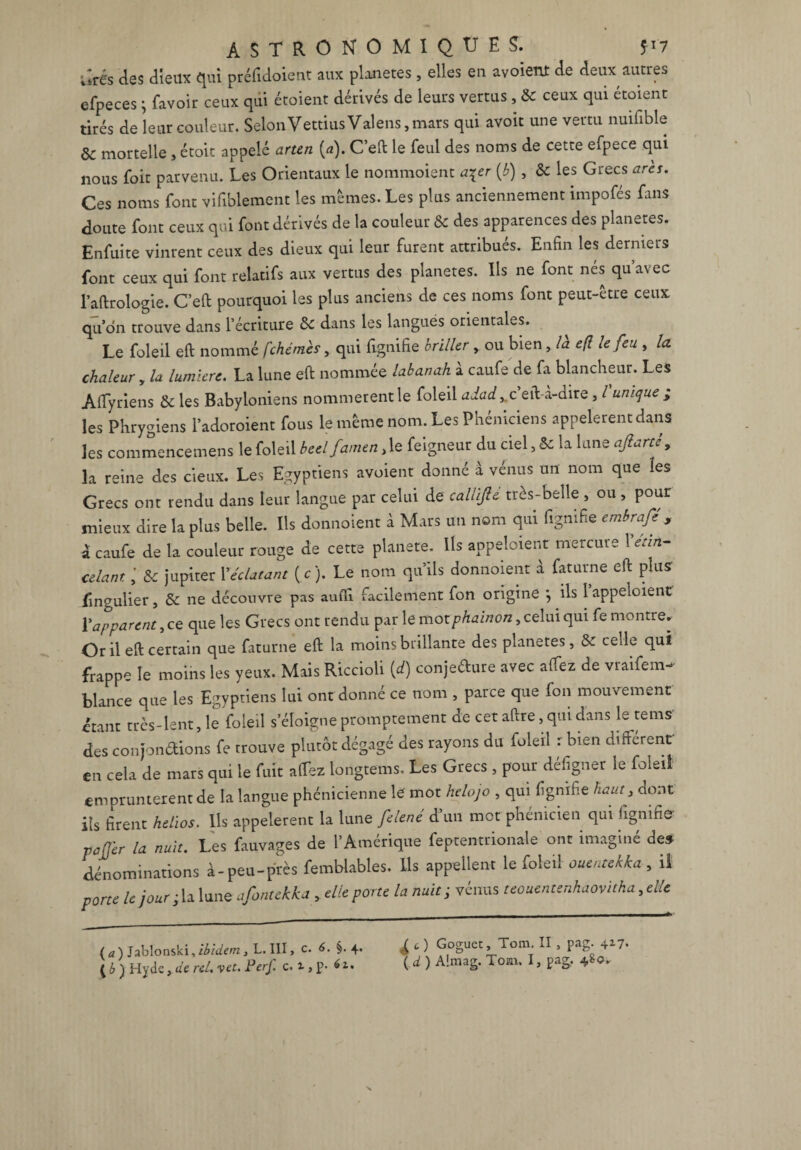 ASTRONOMIQUES. 517
tirés des dieux qui préſidoient aux planetes, elles en avoient de deux autres
eſpeces; ſavoir ceux qui étoient dérivés de leurs vertus, & ceux qui étoient
tirés de leur couleur. Selon Vettius Valens, mars qui avoit une vertu nuiſible
& mortelle, étoit appelé arten (a). C'eſt le ſeul des noms de cette eſpece qui
nous ſoit parvenu. Les Orientaux le nommoient azer (b), & les Grecs arès.
Ces noms ſont viſiblement les mêmes. Les plus anciennement impoſés ſans
doute ſont ceux qui ſont dérivés de la couleur & des apparences des planetes.
Enſuite vinrent ceux des dieux qui leur furent attribués. Enfin les derniers
ſont ceux qui ſont relatifs aux vertus des planetes. Ils ne ſont nés qu'avec
l'aſtrologie. C'eſt pourquoi les plus anciens de ces noms ſont peut-être ceux
qu'on trouve dans l'écriture & dans les langues orientales.
Le ſoleil eſt nommé ſchémès, qui ſignifie briller, ou bien, là eſt le feu, la
chaleur, la lumiere. La lune eſt nommée labanah à cauſe de ſa blancheur. Les
Aſſyriens & les Babyloniens nommerent le ſoleil adad, c'eſt-à-dire, l'unique;
les Phrygiens l'adoroient ſous le même nom. Les Phéniciens appelerent dans
les commencemens le ſoleil beel ſamen, le ſeigneur du ciel, & la lune aſtarté,
la reine des cieux. Les Egyptiens avoient donné à vénus un nom que les
Grecs ont rendu dans leur langue par celui de calliſté très-belle, ou, pour
mieux dire la plus belle. Ils donnoient à Mars un nom qui ſignifie embraſé,
à cauſe de la couleur rouge de cette planete. Ils appeloient mercure l'étin-
celant, & jupiter l'éclatant (c). Le nom qu'ils donnoient à ſaturne eſt plus
ſingulier, & ne découvre pas auſſi facilement ſon origine; ils l'appeloient
l'apparent, ce que les Grecs ont rendu par le mot phainon, celui qui ſe montre.
Or il eſt certain que ſaturne eſt la moins brillante des planetes, & celle qui
frappe le moins les yeux. Mais Riccioli (d) conjecture avec aſſez de vraiſem-
blance que les Egyptiens lui ont donné ce nom, parce que ſon mouvement
étant très-lent, le ſoleil s'éloigne promptement de cet aſtre, qui dans le tems
des conjonctions ſe trouve plutôt dégagé des rayons du ſoleil: bien différent
en cela de mars qui le ſuit aſſez longtems. Les Grecs, pour déſigner le ſoleil
emprunterent de la langue phénicienne le mot helojo, qui ſignifie haut, dont
ils firent helios. Ils appelerent la lune ſelené d'un mot phénicien qui ſignifie
paſſer la nuit. Les ſauvages de l'Amérique ſeptentrionale ont imaginé des
dénominations à-peu-près ſemblables. Ils appellent le ſoleil ouentekka, il
porte le jour; la lune aſontekka, elle porte la nuit; vénus teouentenhaovitha, elle
(a) Jablonski, ibidem, L. III, c. 6. §. 4.
(b) Hyde, de rel. vet. Perſ. c. 2, p. 62.
(c) Goguet, Tom. II, pag. 427.
(d) Almag. Tom. I, pag. 480.